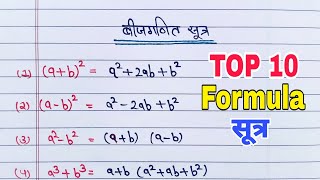 बीजगणित सूत्र
(1) (a+b)² = a²+2ab+b²
(2) (a-b)² = a²-2ab+b²
(3) a²-b² = (a+b) (a-b)
(4) a³+b³ = a+b (a²+ab+b²)
TOP 10
Formula
सूत्र